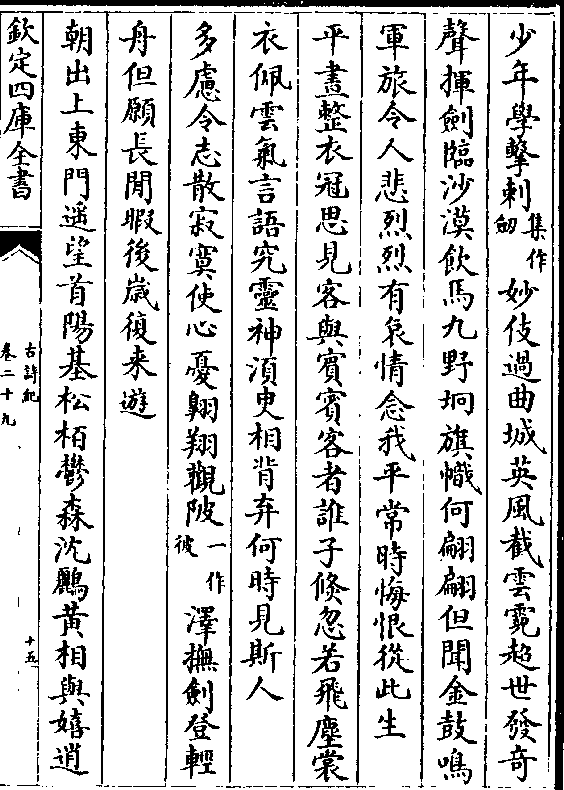 少年學擊刺集作劒妙伎過曲城英風截雲霓超世發奇
聲揮劍臨沙漠飲馬九野坰旗幟何翩翩但聞金鼓鳴
軍旅令人悲烈烈有哀情念我平常時悔恨從此生
平晝整衣冠思見客與賓賓客者誰子倐忽若飛塵裳
衣佩雲氣言語究靈神湏㬰相背弃何時見斯人
多慮令志散寂寞使心憂翺翔觀陂一作彼澤撫劍登輕
舟但願長閒暇後歳復来遊
朝出上東門遥望首陽基松栢鬱森沈鸝黄相與嬉逍
欽定四庫全書
古詩紀
卷二十九
十五